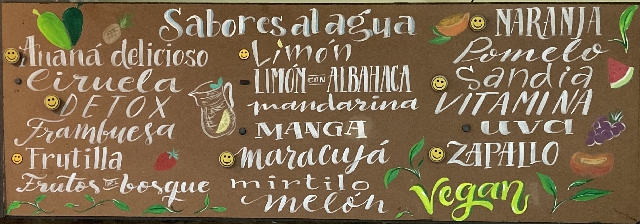 Sabores al agua
Ananá delicioso
Ciruela
DETOX
Frambuesa
Frutilla
Frutos de bosque
Limón
LIMÓN CON ALBAHACA
mandarina
MANGA
maracuyá
mirtilo
melón
NARANJA
Pomelo
Sandia
VITAMINA
uva
ZAPALLO
Vegan